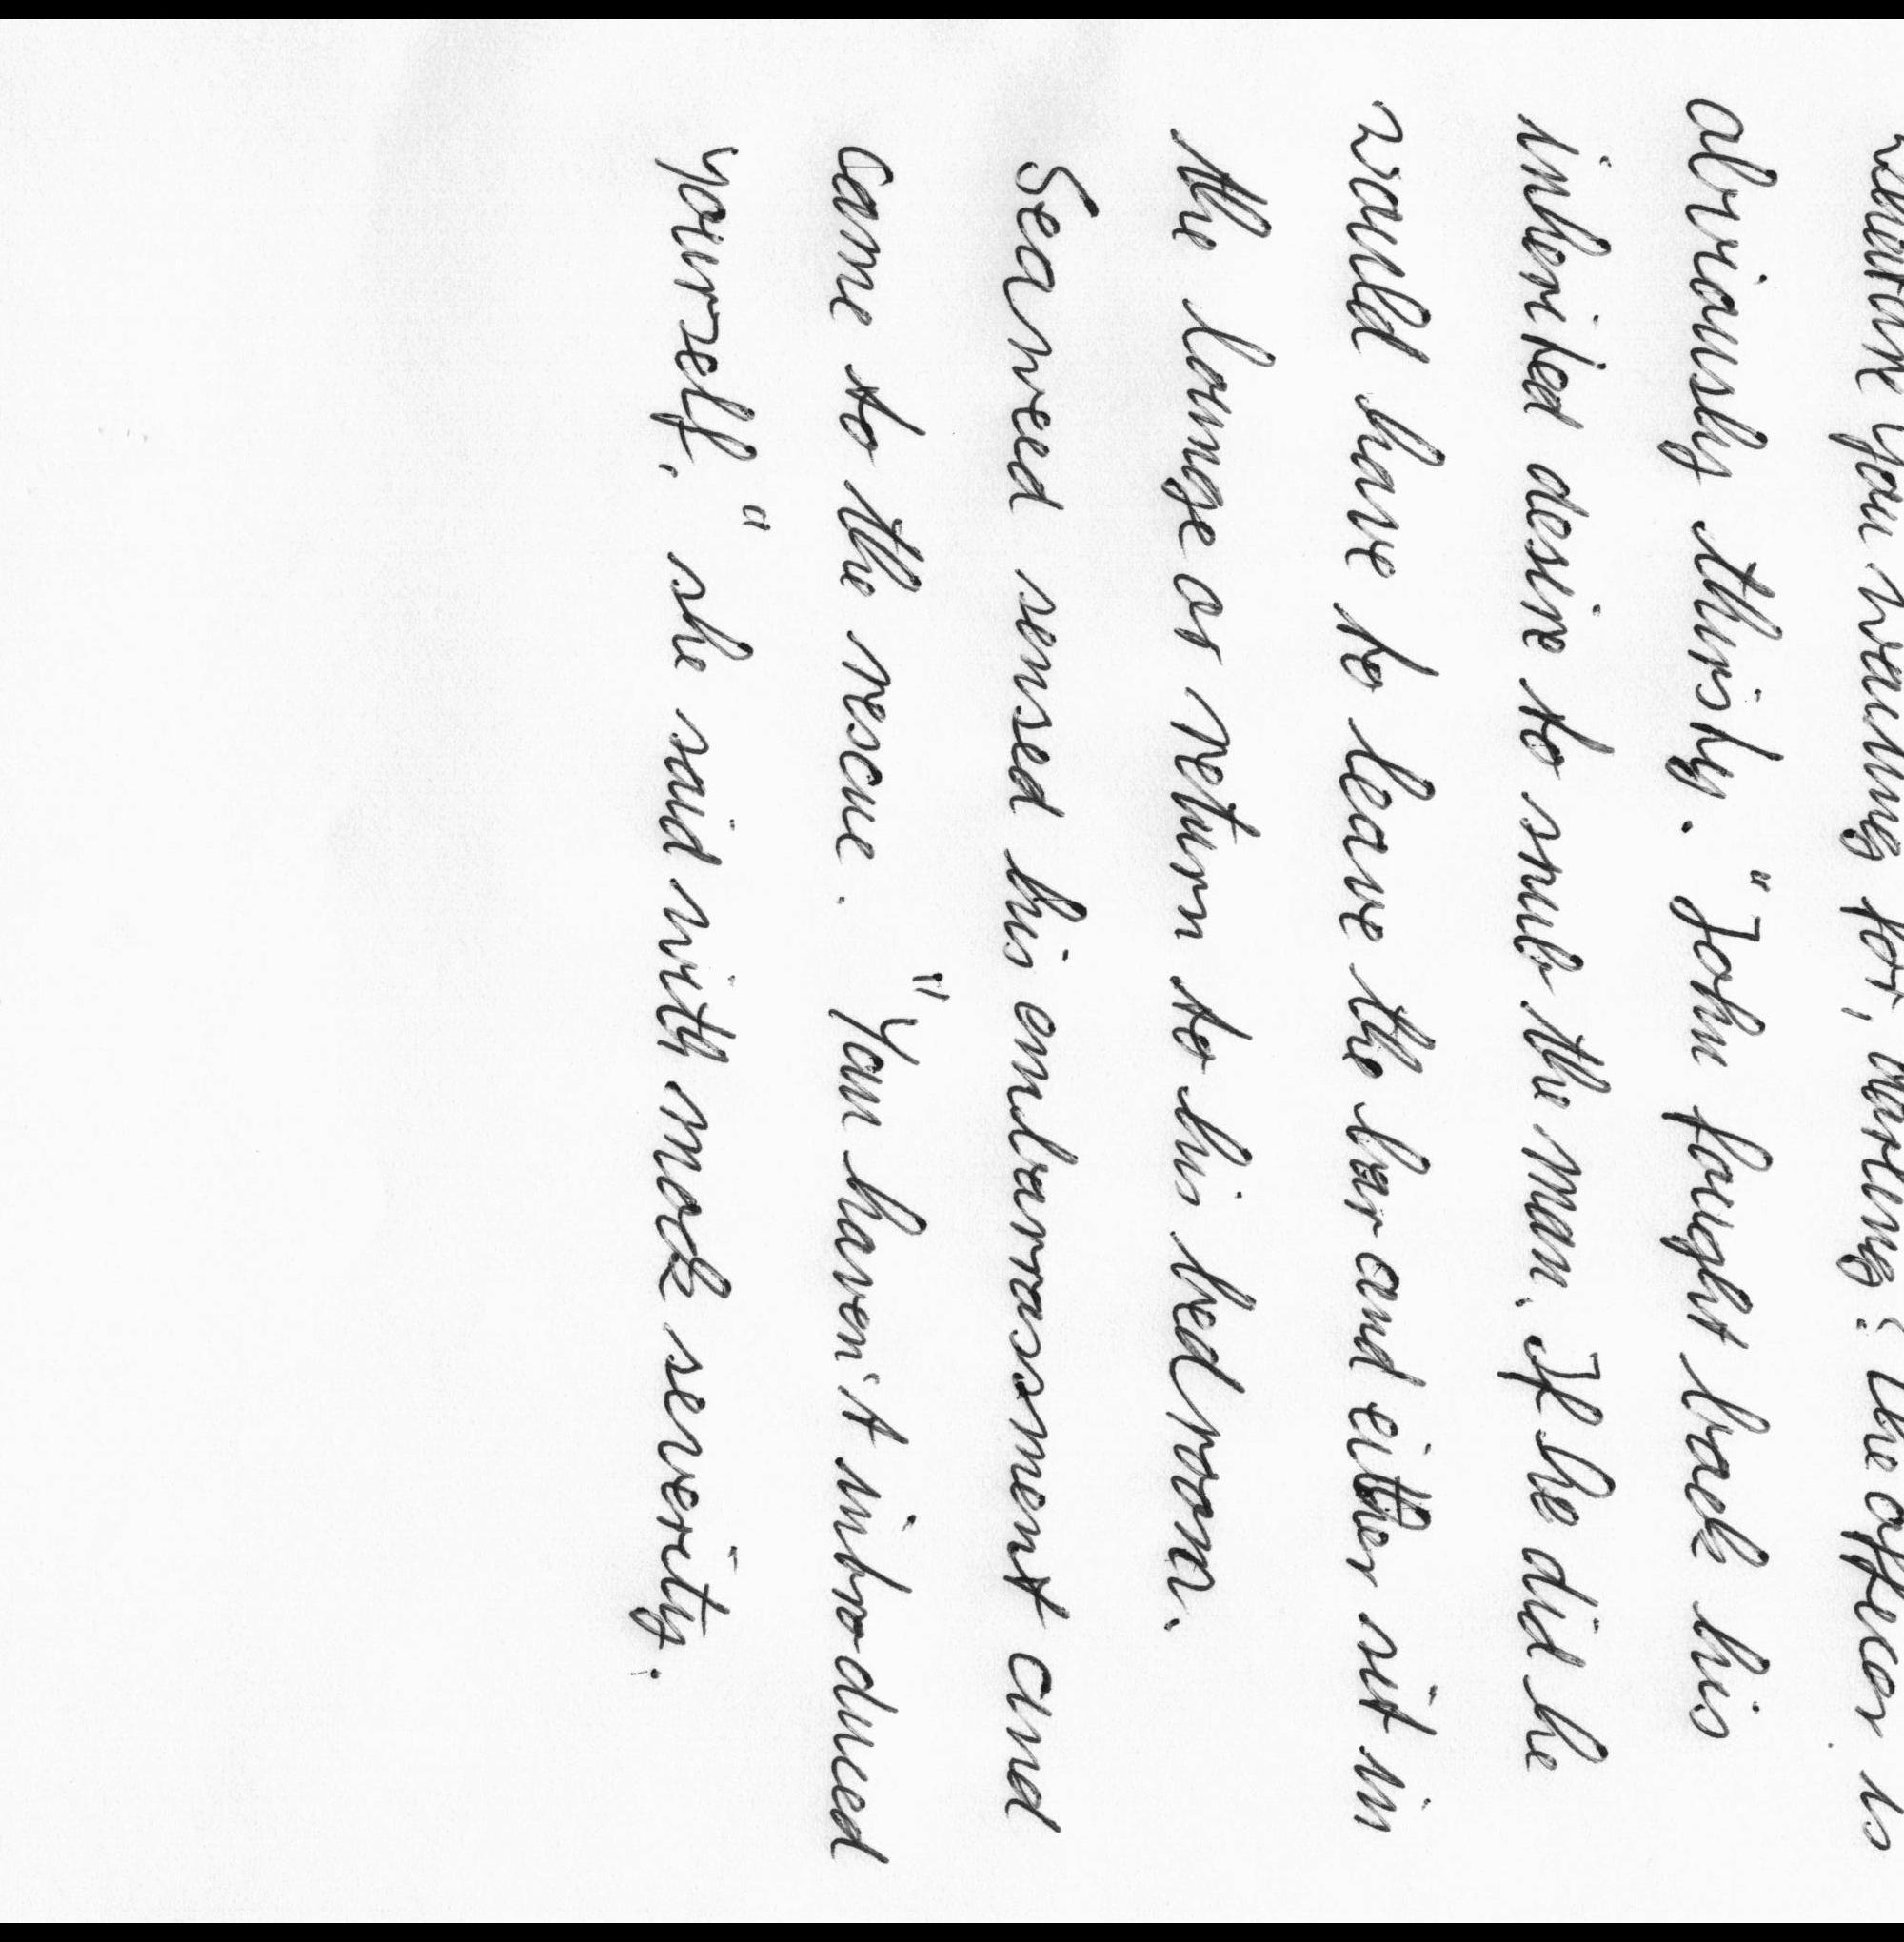 you waiting for, darling? the officer is
obviously thirsty. "John fought back his
inherited desire to snub the man. If he did he
would have to leave the bar and either sit in
the lounge or return to his bedroom.
Seaweed sensed his embarrassment and
came to the rescue. "You haven't introduced
yourself," she said with mock serverity.